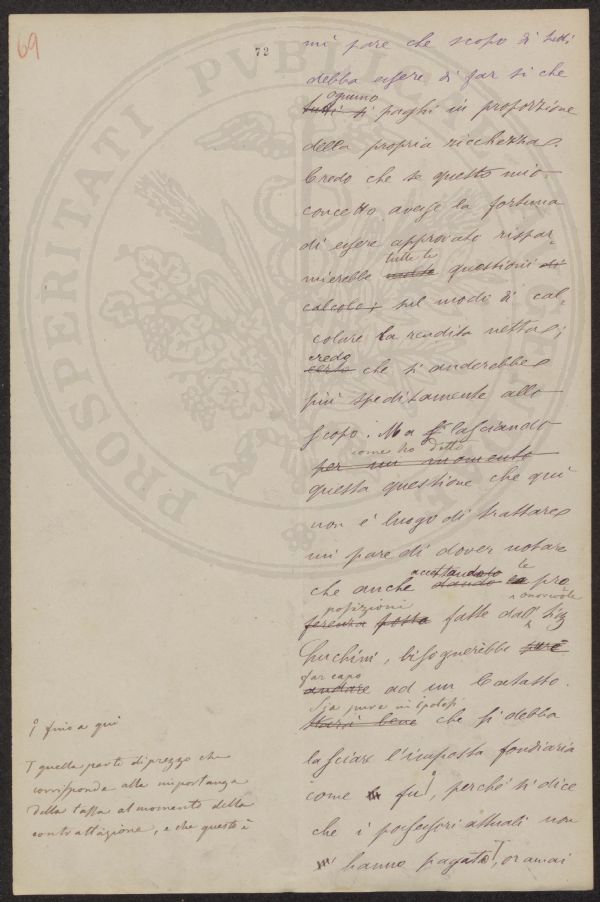 69
72
PROSPERITATI PVBLIC
mi pare che scopo di tutti
debba essere di far si che
ognuno
tutti si paghi in proporzione
della propria ricchezza.
Credo che se questo mio
concetto avesse la fortuna
di essere approvato rispar-
tutte le
mierebbe molte questioni di
calcolo; sul modi di cal-
colare la rendita netta;
credo
certo che si anderebbe
più speditamente allo
scopo. Ma lasciando
come ho detto
per un momento
questa questione che qui
non è luogo di trattare
mi pare di dover notare
accettandolo le
che anche dando la pro
posizioni onorevole
ferenza posta fatte dall' Sig
Luchini, bisognerebbe
far capo
andare ad un Catasto.
Sia pure in ipotesi
Starà bene che si debba
lasciare l'imposta fondiaria
come fu, perché si dice
che i possessori attuali non
hanno pagato, oramai
fino a qui
T quella parte di prezzo che
corrisponde alla importanza
della tassa al momento della
contrattazione, e che questo è